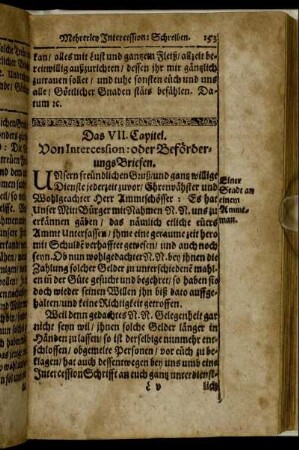 Mehrerley Intercession: Schreiben. 153
kan/ alles mit Lust und gantzem Fleiß/ allzeit be-
reitwillig außzurichten/ dessen ihr mir gäntzlich
zutrauen sollet/ und thue sonsten euch und uns
alle/ Göttlicher Gnaden stäts befählen. Da-
tum ꝛc.
Das VII. Capitel.
Von Intercession: oder Beförder-
ungsBriefen.
UNsern freundlichen Gruß/ und gantz willige
Dienste jederzeit zuvor/ Ehrenvähster und
Wohlgeachter Herr Ammtschösser: Es hat
unser MitBürger mit Nahmen N. N. uns zu
erkännen gäben/ das nämlich etliche eures
Ammt Untersassen/ ihme eine geraume zeit hero
mit Schulde verhafftet gewesen/ und auch noch
seyn. Ob nun wohlgedachter N. N. bey ihnen die
Zahlung solcher Gelder zu unterschiedenē mahlen
in der Güte gesucht und begehret/ so haben sie
doch wieder seinen Willen ihn biß dato auffge-
halten/ und keine Richtigkeit getroffen.
Weil denn gedachtes N. N. Gelegenheit gar
nicht seyn wil/ ihnen solche Gelder länger in
Händen zu lassen/ so ist derselbige nunmehr ent-
schlossen/ obgemelte Personen/ vor euch zu be-
klagen/ hat auch dessentwegen bey uns umb eine
Intercession Schrifft an euch gantz unterdienst-
lich
Einer
Stadt an
einem
Ammt-
man.